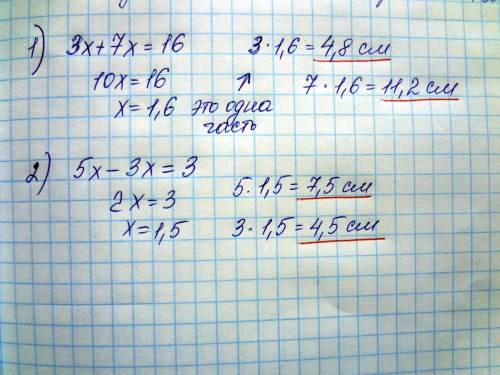 1) 3x+7x=16 3·1,6=4,8 см
10x=16 ↑ 7·1,6=11,2 см
x=1,6 это одна
часть
2) 5x-3x=3
5·1,5=7,5 см
2x=3
x=1,5 3·1,5=4,5 см